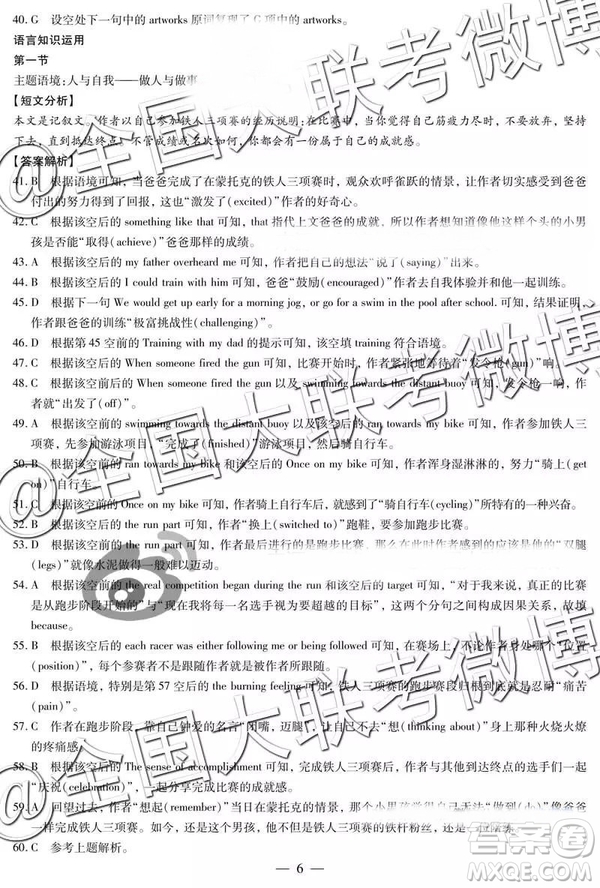 40. G 设空处下一句中的 artworks 原词复现了 G 项中的 artworks.
语言知识运用
第一节
主题语境:人与自我——做人与做事
【短文分析】
本文是记叙文。作者以自己参加铁人三项赛的经历说明:在比赛中,当你觉得自己筋疲力尽时,不要放弃,坚持
下去,直到抵达终点,不管成绩或名次如何,你都会有一份属于自己的成就感。
【答案解析】
41. B 根据语境可知,当爸爸完成了在蒙托克的铁人三项赛时,观众欢呼雀跃的情景,让作者切实感受到爸爸
付出的努力得到了回报,这也“激发了(excited)”作者的好奇心。
42. C 根据该空后的 something like that 可知,that 指代上文爸爸的成就,所以作者想知道像他这样个头的小男
孩是否能“取得(achieve)”爸爸那样的成绩。
43. A 根据该空后的 my father overheard me 可知,作者把自己的想法“说了(saying)”出来。
44. B 根据该空后的 I could train with him 可知,爸爸“鼓励(encouraged)”作者和他一起训练。
45. D 根据下一句 We would get up early for a morning jog, or go for a swim in the pool after school. 可知,
作者跟爸爸的训练“极富挑战性(challenging)”。
46. D 根据第 45 空前的 Training with my dad 的提示可知,该空填 training 符合语境。
47. C 根据该空前后的 When someone fired the 可知,比赛开始时,作者紧张地等待着“发令枪(gun)”响。
48. C 根据该空前的 When someone fired the gun 以及 swimming towards the distant buoy 可知,发令枪一响,作
者就“出发了(off)”。
49. A 根据该空前的 swimming towards the distant buoy 以及该空后的 ran towards my bike 可知,作者参加铁人三
项赛,先参加游泳项目,“完成了(finished)”游泳项目之后,然后骑自行车。
50. B 根据该空前的 ran towards my bike 和该空后的 Once on my bike 可知,作者浑身湿淋淋的,努力“骑上(get
on)”自行车。
51. C 根据该空前的 Once on my bike 可知,作者骑上自行车后,感到了“骑自行车(cycling)”所特有的一种兴奋。
52. B 根据该空后的 the run part 可知,作者“换上(switched to)”跑鞋,要参加跑步比赛。
53. D 根据该空前的 the run part 可知,作者现在参加的是跑步比赛,那么在此时作者感到的应该是“双腿
(legs)”就像水泥做得一般难以迈动。
54. A 根据该空前的 the real competition began during the run 和该空后的语境可知,“对于我来说,真正的比赛
是从跑步阶段开始的”与“现在我将每一名选手视为要超越的目标”,这两句之间的关系为因果关系,故填
because。
55. B 根据该空后的 each racer was either following me or being followed 可知,在赛场上,不论作者身处哪个“位置
(position)”,每个参赛者不是跟随作者就是被作者跟随。
56. D 根据语境,特别是第 57 空后的 the burning feeling 可知,铁人三项赛的跑步赛段归根到底就是忍耐“痛苦
(pain)”。
57. C 作者在跑步阶段,靠自己钟爱的名言“闭嘴,迈腿”,才不去“想(thinking about)”身上的那种火烧火燎
的疼痛感。
58. B 根据该空后的 The sense of accomplishment 可知,完成铁人三项赛后,作者与其他到达终点的选手进行
“庆祝(celebration)”,一起分享完成比赛的成就感。
59. A 回望过去,作者“想起(remember)”当日在蒙托克那个充满
完成铁人三项赛。如今,这个男孩,作为铁人三项赛的铁杆粉丝,还是
60. C 参考上题解析。
— 6 —
@全国大联考微博
@全国大联考微博
@全国大联考微博
答案圈